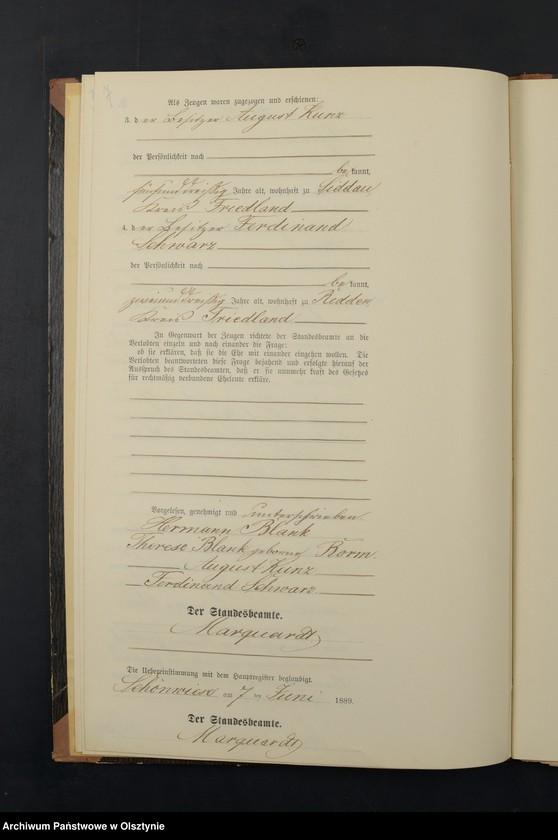 Als Zeugen waren zugezogen und erschienen:
3. der Besitzer August Kunz
der Persönlichkeit nach
bekannt,
fünfunddreißig Jahre alt, wohnhaft zu Siddau
Kreis Friedland
4. der Besitzer Ferdinand
Schwarz
der Persönlichkeit nach
bekannt,
zweiunddreißig Jahre alt, wohnhaft zu Redden
Kreis Friedland
In Gegenwart der Zeugen richtete der Standesbeamte an die
Verlobten einzeln und nach einander die Frage:
ob sie erklären, daß sie die Ehe mit einander eingehen wollen. Die
Verlobten beantworteten diese Frage bejahend und erfolgte hierauf der
Ausspruch des Standesbeamten, daß er sie nunmehr kraft des Gesetzes
für rechtmäßig verbundene Eheleute erkläre.
Vorgelesen, genehmigt und unterschrieben
Hermann Blank
Therese Blank geborene Korm
August Kunz
Ferdinand Schwarz
Der Standesbeamte.
Marquardt
Die Uebereinstimmung mit dem Hauptregister beglaubigt.
Schönwiese am 7 ten Juni 1889.
Der Standesbeamte.
Marquardt
Archiwum Państwowe w Olsztynie